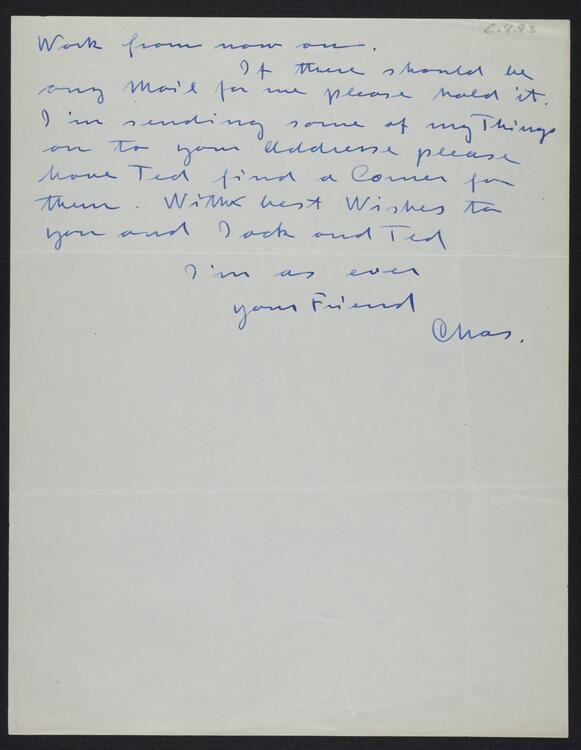 C.9.93
Work from now on.
If there should be
any Mail for me please hold it.
I'm sending some of my Things
on to your Addresse please
have Ted find a Corner for
them. With best Wishes to
you and Jack and Ted
I'm as ever
your Friend
Chas.